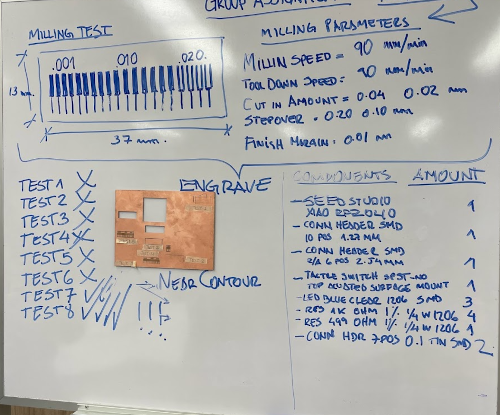 GROUP ASSIGN
MILLING TEST
.001 010 .020.
13 mm
37 mm.
MILLING PARAMETERS
MILLIN SPEED = 90 mm/min
TOOL DOWN SPEED = 90 mm/min
CUT IN AMOUNT = 0.04 0.02 mm
STEPOVER . 0.20 0.10 mm
FINISH MARGIN: 0.01 mm
ENGRAVE
TEST 1 X
TEST 2 X
TEST 3 X
TEST 4 X
TEST 5 X
TEST 6 X
TEST 7
TEST 8
NEAR CONTOUR
COMPONENTS AMOUNT
- SEED STUDIO
XIAO RP2040 1
- CONN HEADER SMD
10 POS 1.27 MM 1
- CONN HEADER SMD
6 POS 2.54 MM 1
- TACTILE SWITCH SPST-NO
TOP ACUATED SURFACE MOUNT 1
- LED BLUE CLEAR 1206 SMD 3
- RES 1K OHM 1% 1/4 W 1206 4
- RES 499 OHM 1% 1/4 W 1206 1
- CONN HDR 7POS 0.1 TIN SMD 2